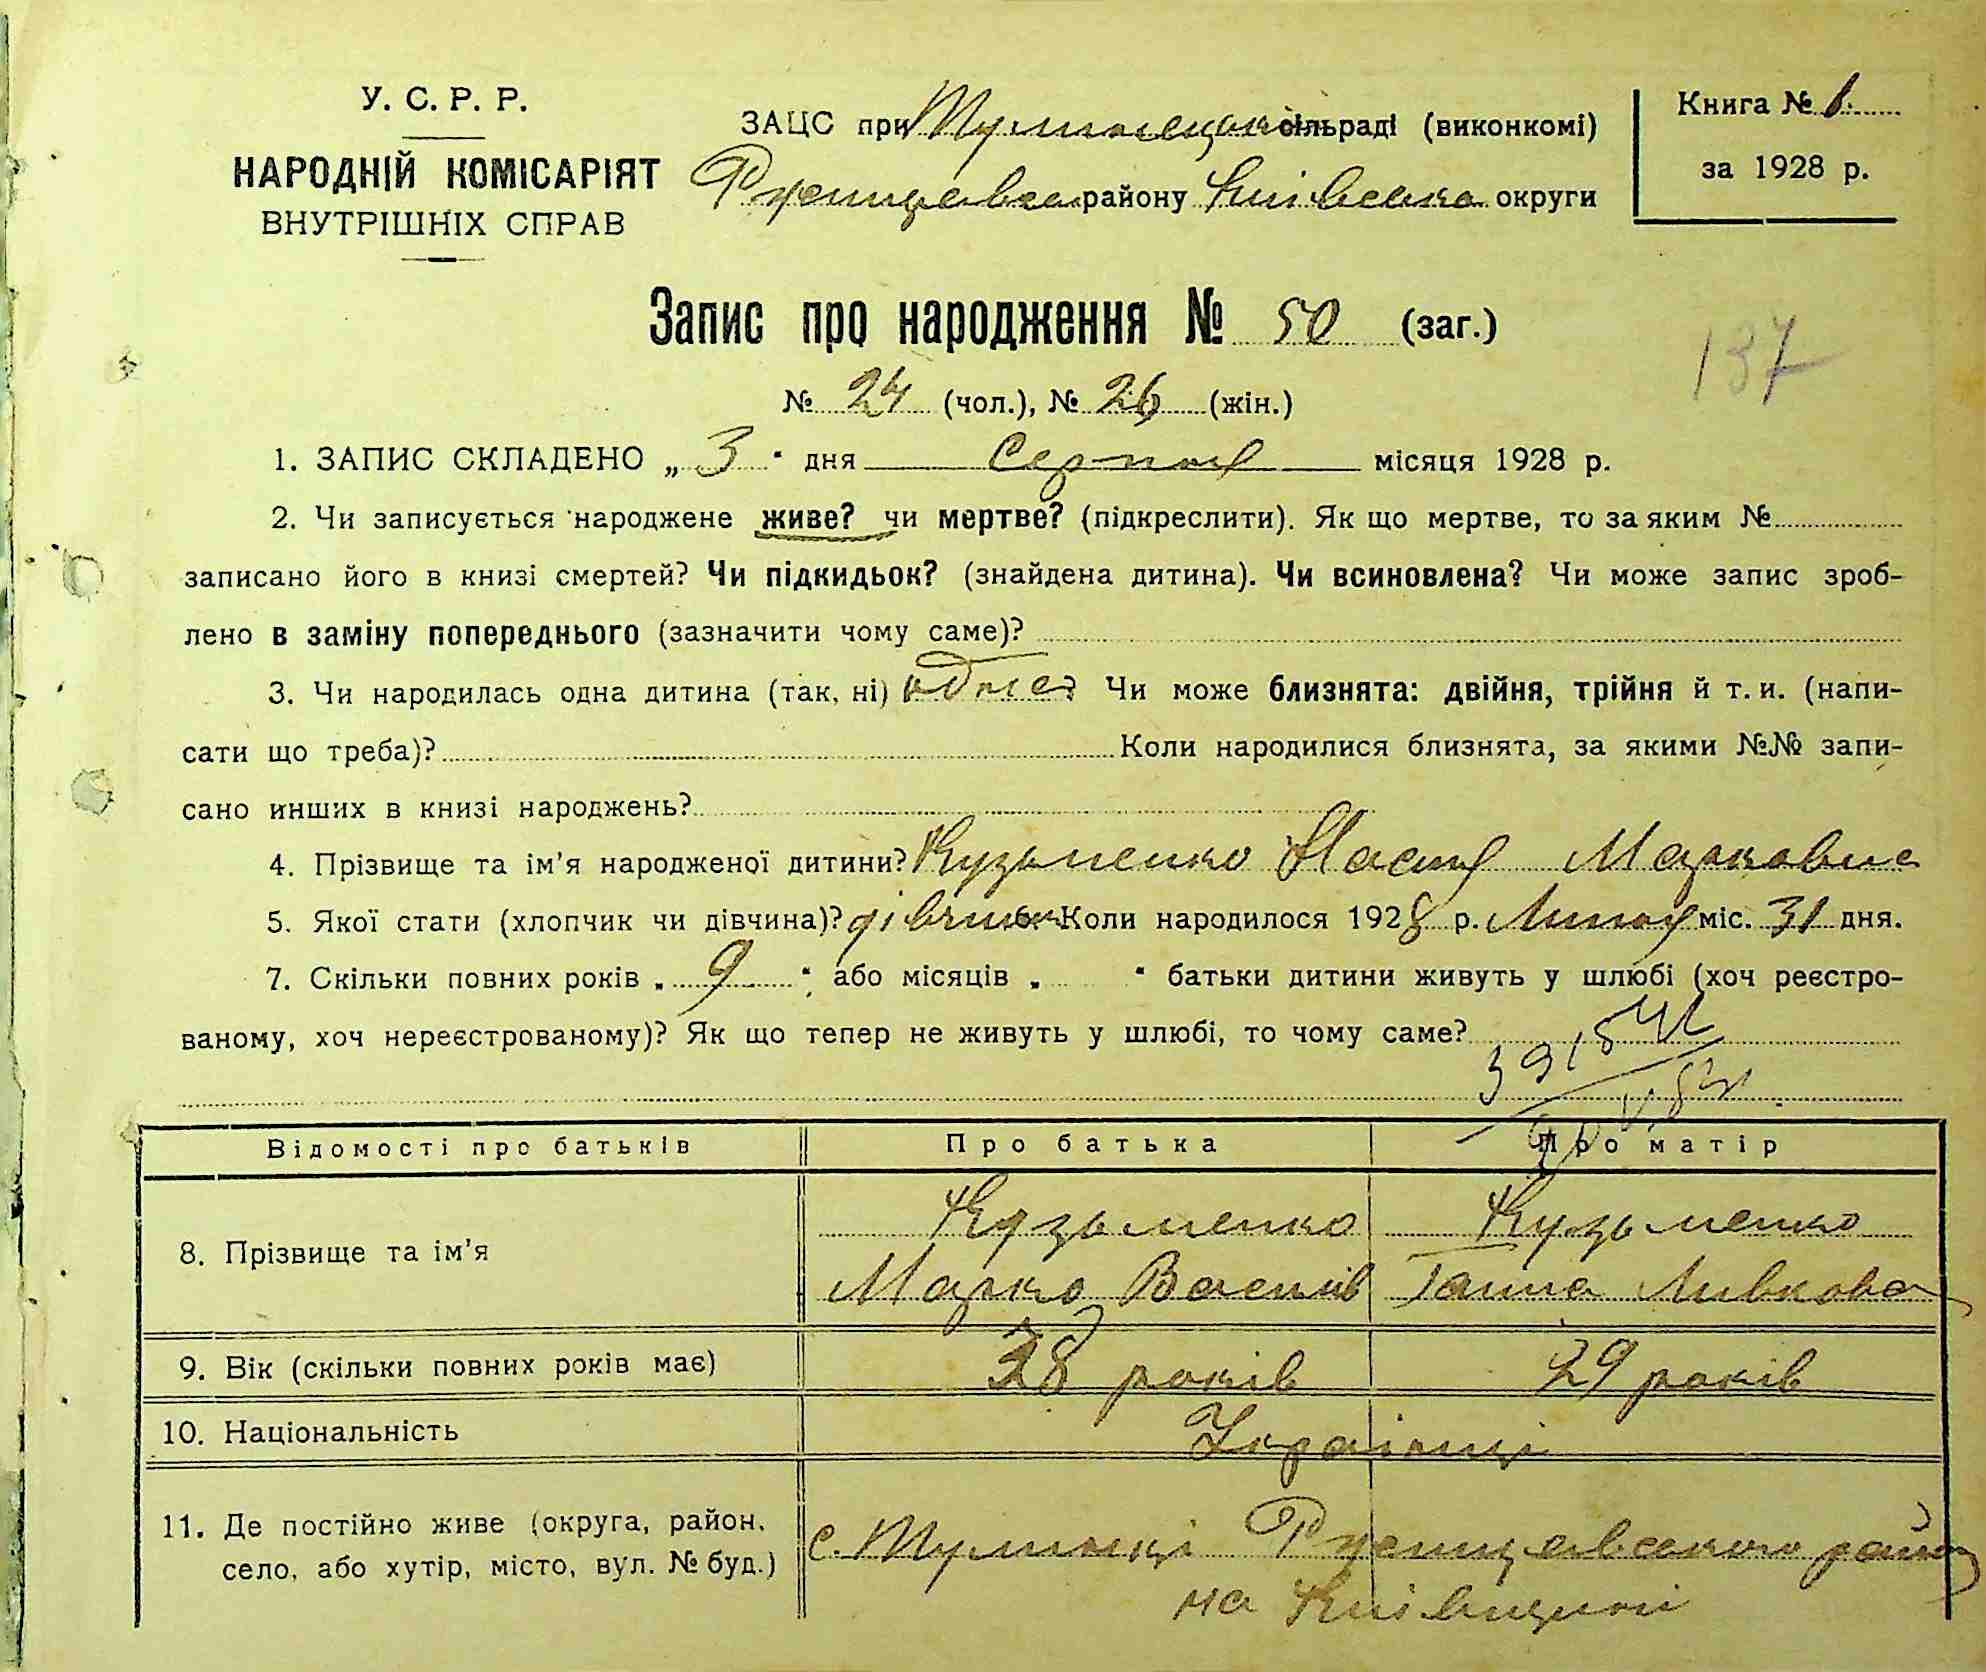 У. С. Р. Р.
НАРОДНІЙ КОМІСАРІЯТ
ВНУТРІШНІХ СПРАВ
ЗАЦС при Тулинецькій сільраді (виконкомі)
району Київської округи
Книга № 1.
за 1928 р.
Запис про народження № 50 (заг.)
137
№ 24 (чол.), № 26 (жін.)
1. ЗАПИС СКЛАДЕНО „ 3 " дня Серпня місяця 1928 р.
2. Чи записується народжене живе? чи мертве? (підкреслити). Як що мертве, то за яким №
записано його в книзі смертей? Чи підкидьок? (знайдена дитина). Чи всиновлена? Чи може запис зроб-
лено в заміну попереднього (зазначити чому саме)?
3. Чи народилась одна дитина (так, ні) одна Чи може близнята: двійня, трійня й т. и. (напи-
сати що треба)? Коли народилися близнята, за якими №№ запи-
сано инших в книзі народжень?
4. Прізвище та ім'я народженої дитини? Кузьменко Настя Марковна
5. Якої стати (хлопчик чи дівчина)? дівчинка Коли народилося 1928 р. Липня міс. 31 дня.
7. Скільки повних років „ 9 " або місяців „ " батьки дитини живуть у шлюбі (хоч реєстро-
ваному, хоч нереєстрованому)? Як що тепер не живуть у шлюбі, то чому саме?
Відомості про батьків Про батька Про матір
8. Прізвище та ім'я
Кузьменко Кузьменко
Марко Василів Ганна Ливкова
9. Вік (скільки повних років має) 28 років 29 років
10. Національність Українці
11. Де постійно живе (округа, район,
село, або хутір, місто, вул. № буд.)
с. Тулинці Ржищевського району
на Київщині